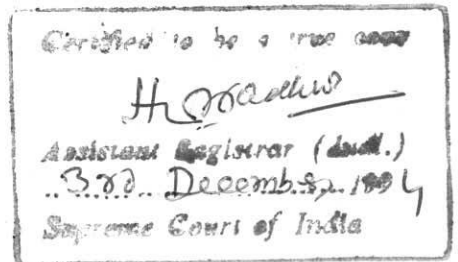 Certified to be a true copy
Assistant Registrar (Judl.)
3rd December 1994
Supreme Court of India